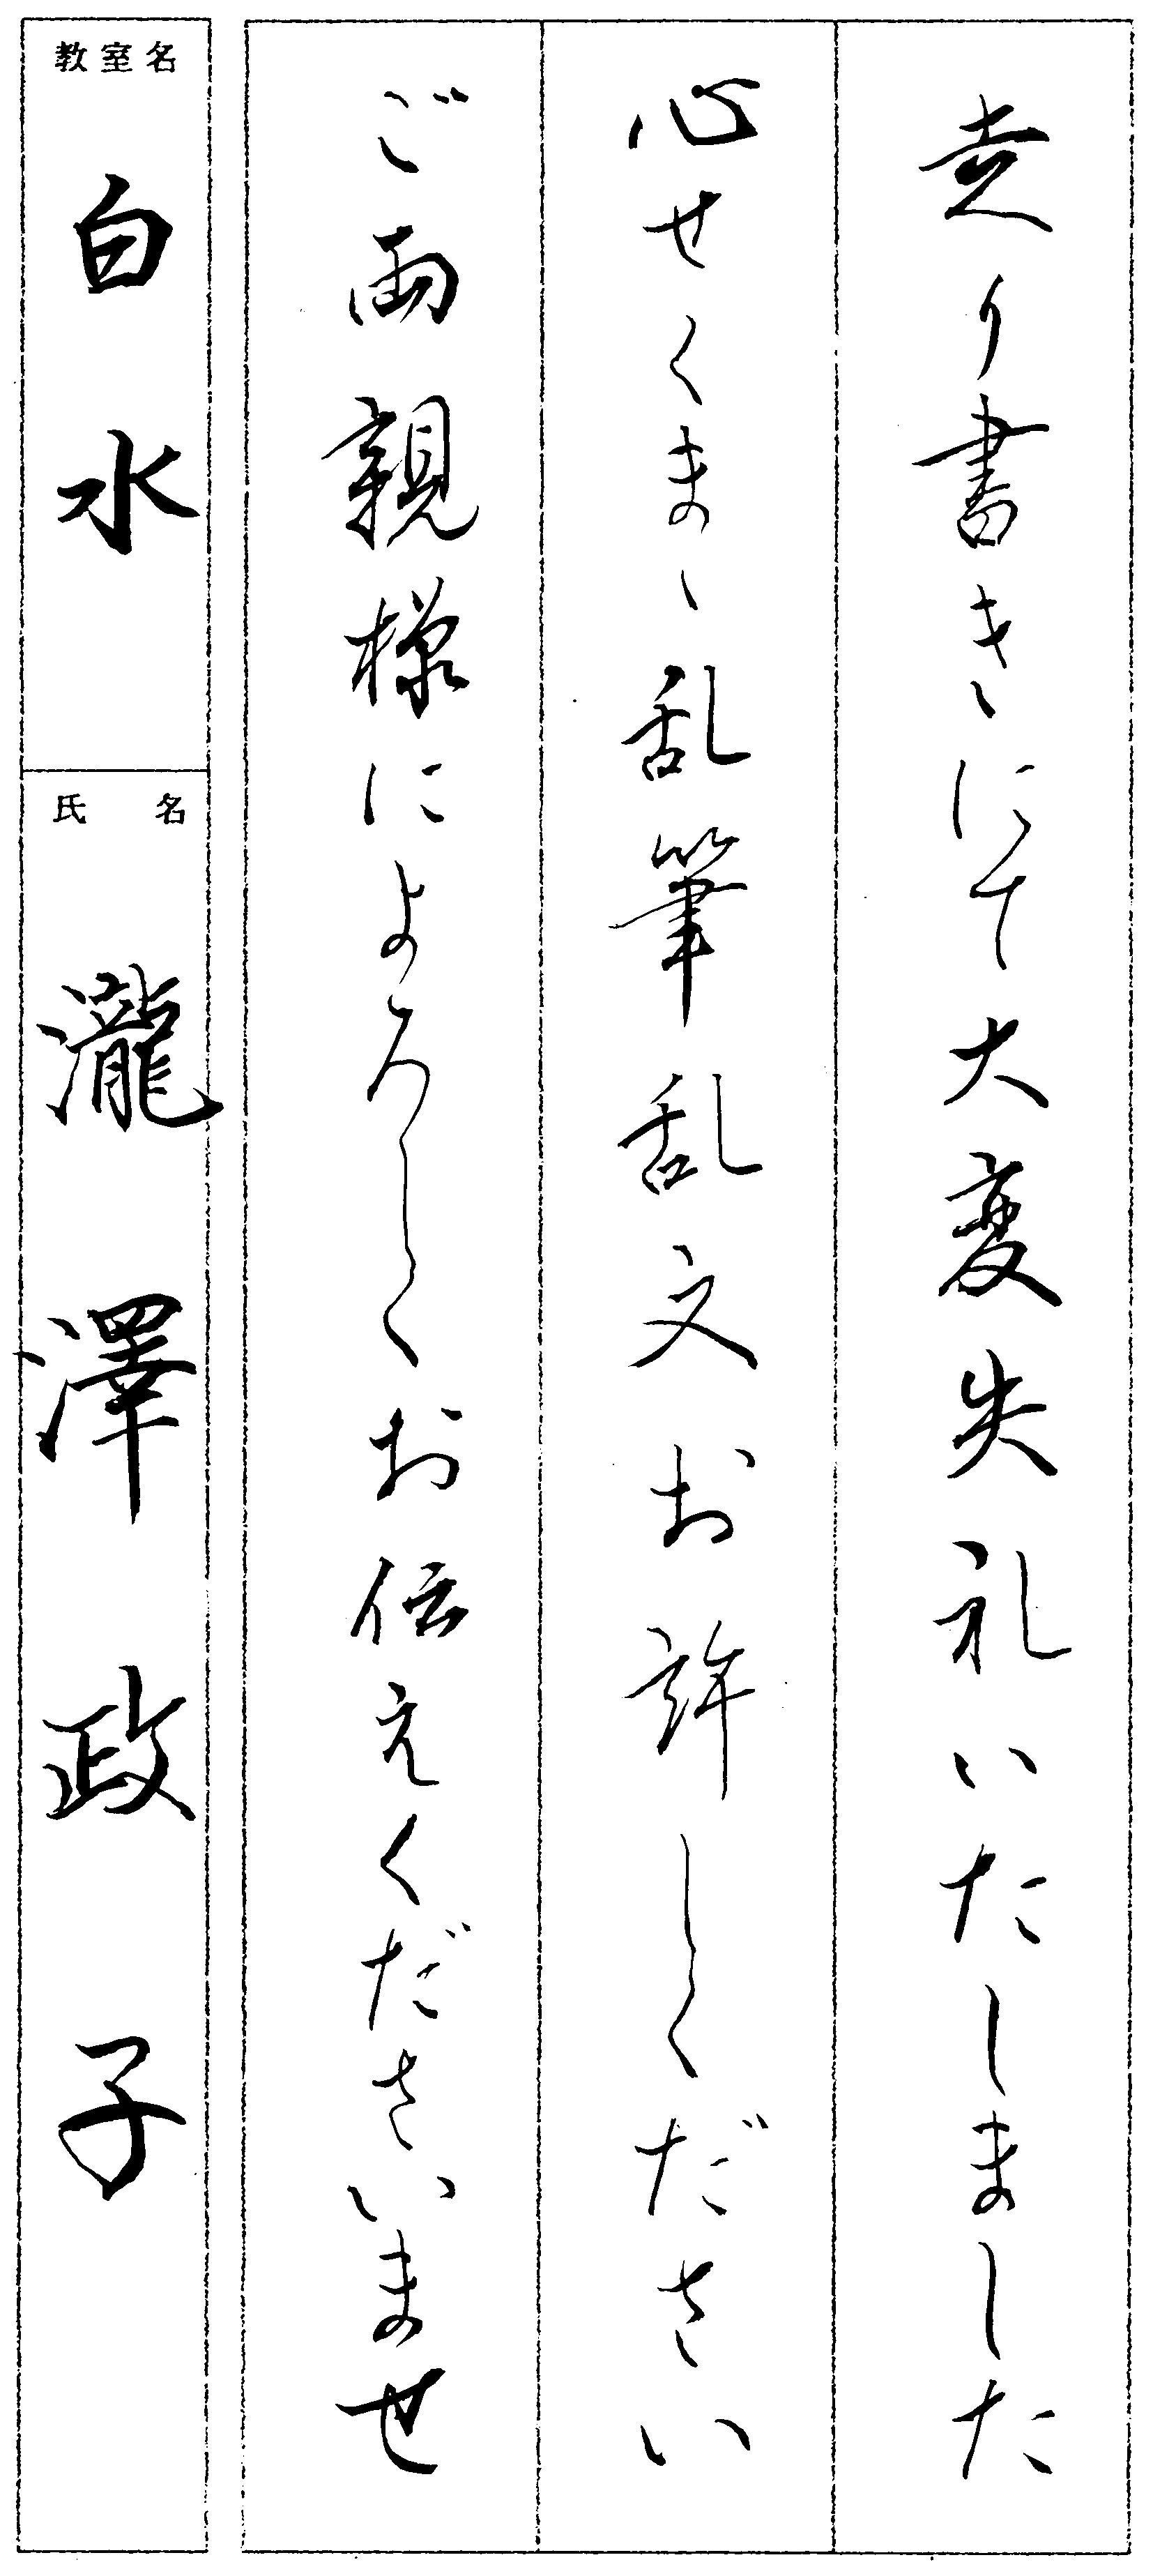 走り書きにて大変失礼いたしました
心せくまゝ乱筆乱文お許しください
ご両親様によろしくお伝えくださいませ
教室名
白水
氏名
瀧澤政子